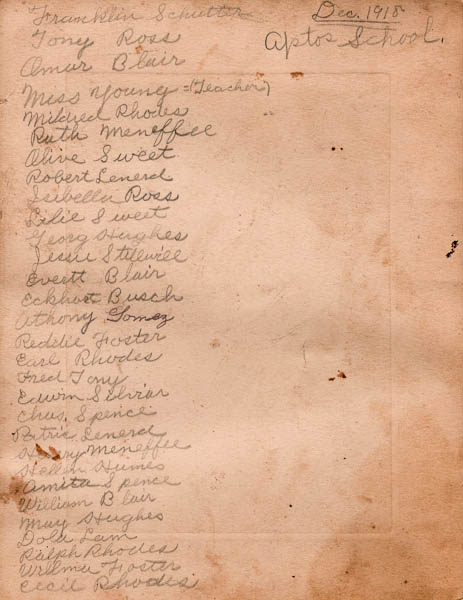 Franklin Schutter
Dec. 1918
Tony Ross
Aptos School.
Omur Blair
Miss Young =(Teacher)
Mildred Rhodes
Ruth Meneffee
Olive Sweet
Robert Lenerd
Isibella Ross
Lilie Sweet
Georg Hughes
Jessie Stillwill
Evertt Blair
Eckhort Busch
Athony Gomez
Reddie Foster
Earl Rhodes
Fred Tony
Edwin Silviar
Chas. Spence
Betric Lenerd
Henry Meneffee
Hellen Humes
Amita Spence
William Blair
May Hughes
Dola Lam
Ralph Rhodes
Willma Foster
Cecil Rhodes